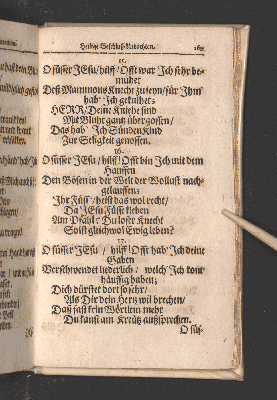 Heilige Beschluß-Andachten.
15.
O süsser JEsu / hilff / Offt war Jch sehr be-
mühet
Deß Mammons Knecht zu seyn / für Jhm
hab' Jch geknihet:
HERR / Deine Kniehe sind
Mit Bluht gantz übergossen /
Das hab' Jch SündenKind
Zur Seligkeit genossen.
16.
O süsser JEsu / hilff! Offt bin Jch mit dem
Hauffen
Den Bösen in der Welt der Wollust nach-
gelauffen:
Jhr Füss' / heist das wol recht /
Da JEsu Füsse kleben
Am Pfahl? Du loser Knecht
Solst gleichwol Ewig leben?
17.
O süsser JEsu / hilff! Offt hab' Jch deine
Gaben
Verschwendet liederlich / welch' Jch kont'
häuffig haben;
Dich dürstet dort so sehr /
Als Dir dein Hertz wil brechen /
Daß fast kein Wörtlein mehr
Du kanst am Kreütz außsprechen.
O süs-